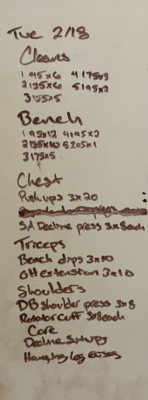 Tue 2/18
Cleans
1 95x6 4 175x3
2 135x6 5 195x2
3 155x5
Bench
1 95x12 4 195x2
2 135x10 5 205x1
3 175x5
Chest
Push ups 3x20
SA Decline press 3x8each
Triceps
Bench dips 3x10
OH extension 3x10
Shoulders
DB Shoulder press 3x8
Rotator Cuff each
Core
Decline Situps
Hanging leg raises